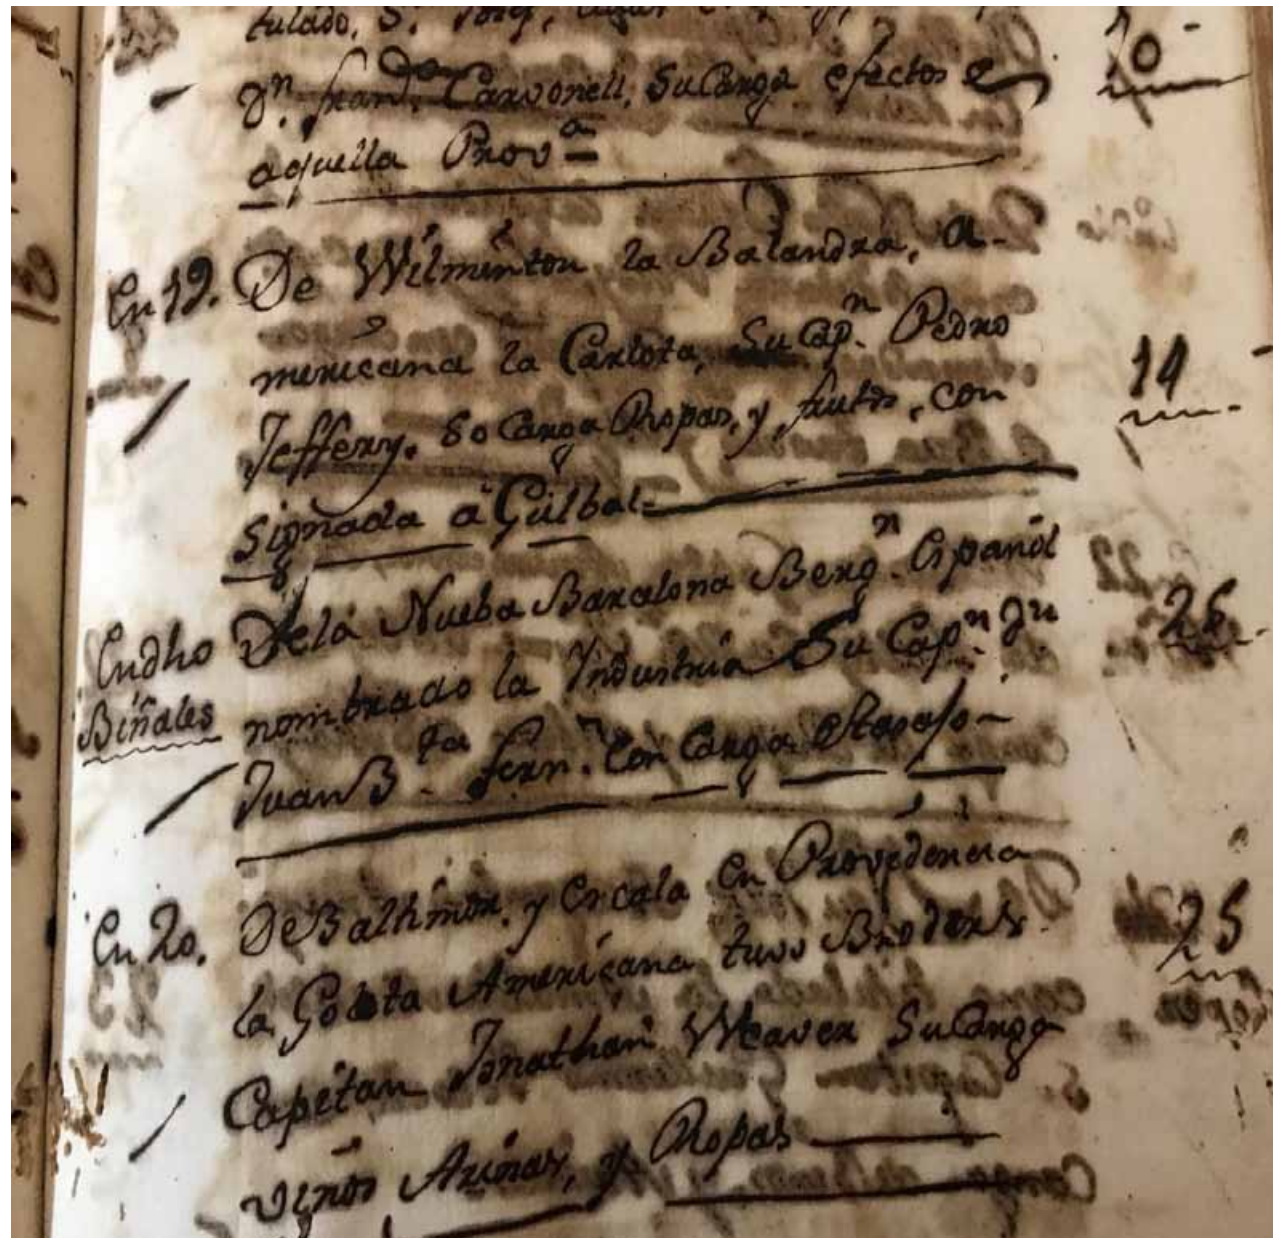 tulado, S.
Dn. Franco. Carvonell, Su Carga efectos e
aquella Prova
10
En 19. De Wilminton la Balandra, A-
mericana la Carlota, Su Capn. Pedro
Jeffery. So Carga Ropas, y frutos, con
14
signada a Gilbal=
En dho De la Nueba Barcalona Bergn. Español
26
nombrado la Industria Su Capn. Dn
Biñales
Juan Bta Fern. Con Carga
En 20. De Balthimor, y Escala En Providencia
25
la Goleta Americana tuvo Broders
Capitan Jonathan Weaver Su Carga
vinos Arinas, y Ropas